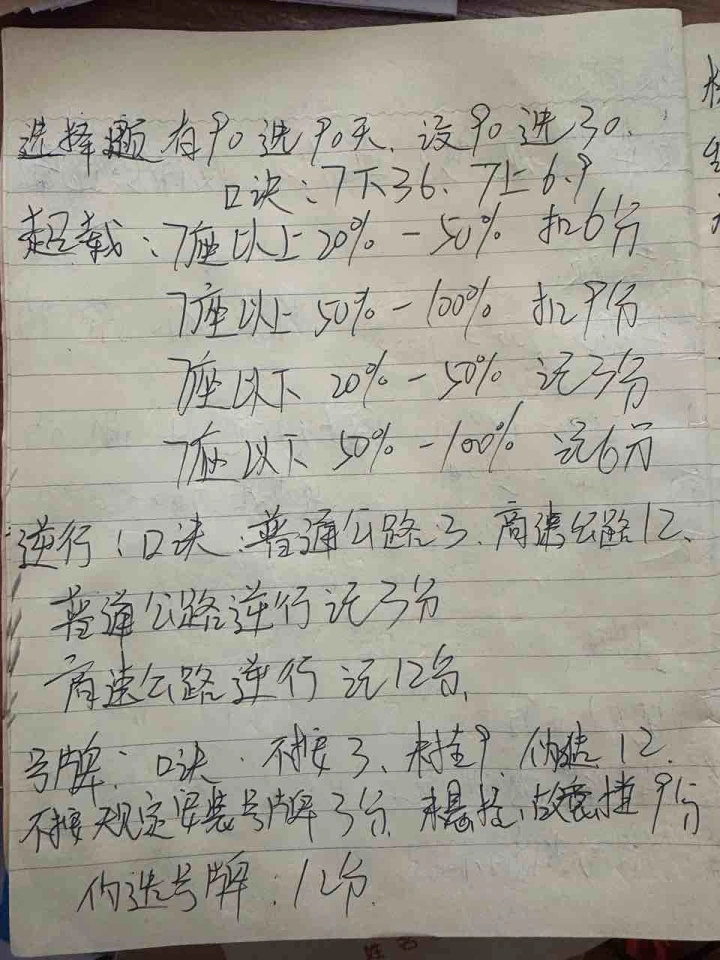 选择题有90选90天、没90选30.
口诀:7下36、7上6.9
超载:7座以上20%-50% 扣6分
7座以上 50%-100% 扣9分
7座以下 20%-50% 记3分
7座以下 50%-100% 记6分
逆行:口诀:普通公路3、高速公路12、
普通公路逆行记3分
高速公路逆行记12分、
号牌:口诀·不按3、未挂9、伪造12.
不按规定安装号牌3分、未悬挂、故意挡9分
伪造号牌:12分.
姓名